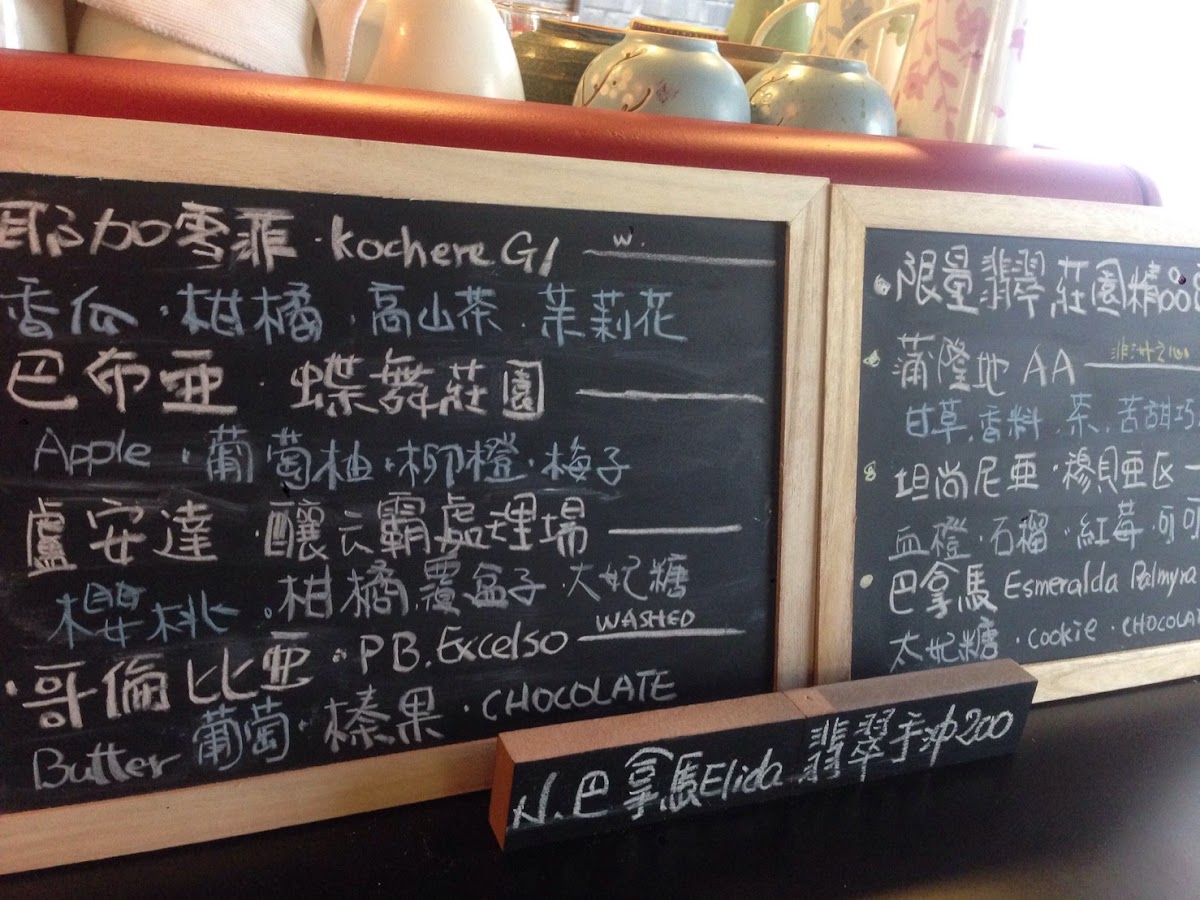 耶加雪菲·Kochere G1 W.
香瓜·柑橘·高山茶·茉莉花
巴布亜·蝶舞莊園
Apple·葡萄柚·柳橙·梅子
盧安達·釀云霸處理場
櫻桃。柑橘,覆盆子·太妃糖
·哥倫比亜·PB.Excelso WASHED
Butter 葡萄·榛果·CHOCOLATE
限量翡翠莊園精品
蒲隆地 AA 非洲之心
甘草.香料.茶.苦甜巧
坦尚尼亜·穆貝亜区
血橙·石榴·紅莓·可可
巴拿馬 Esmeralda Palmyra
太妃糖·Cookie·CHOCOLA
巴拿馬Elida 翡翠手沖200